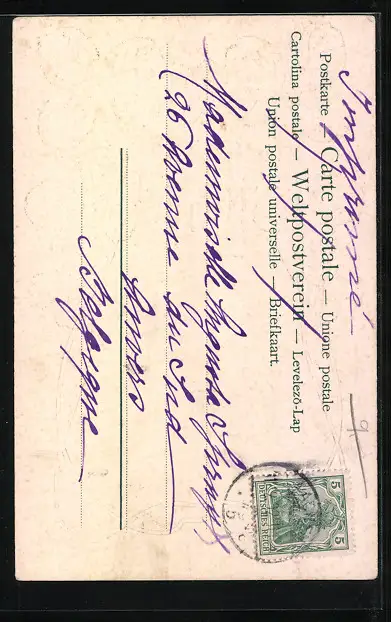 Imprimé
Postkarte — Carte postale — Unione postale
Cartolina postale — Weltpostverein — Levelező-Lap
Union postale universelle — Briefkaart.
9.
5 5
DEUTSCHES REICH
Mademoiselle
26 Avenue du Sud
Anvers
Belgique